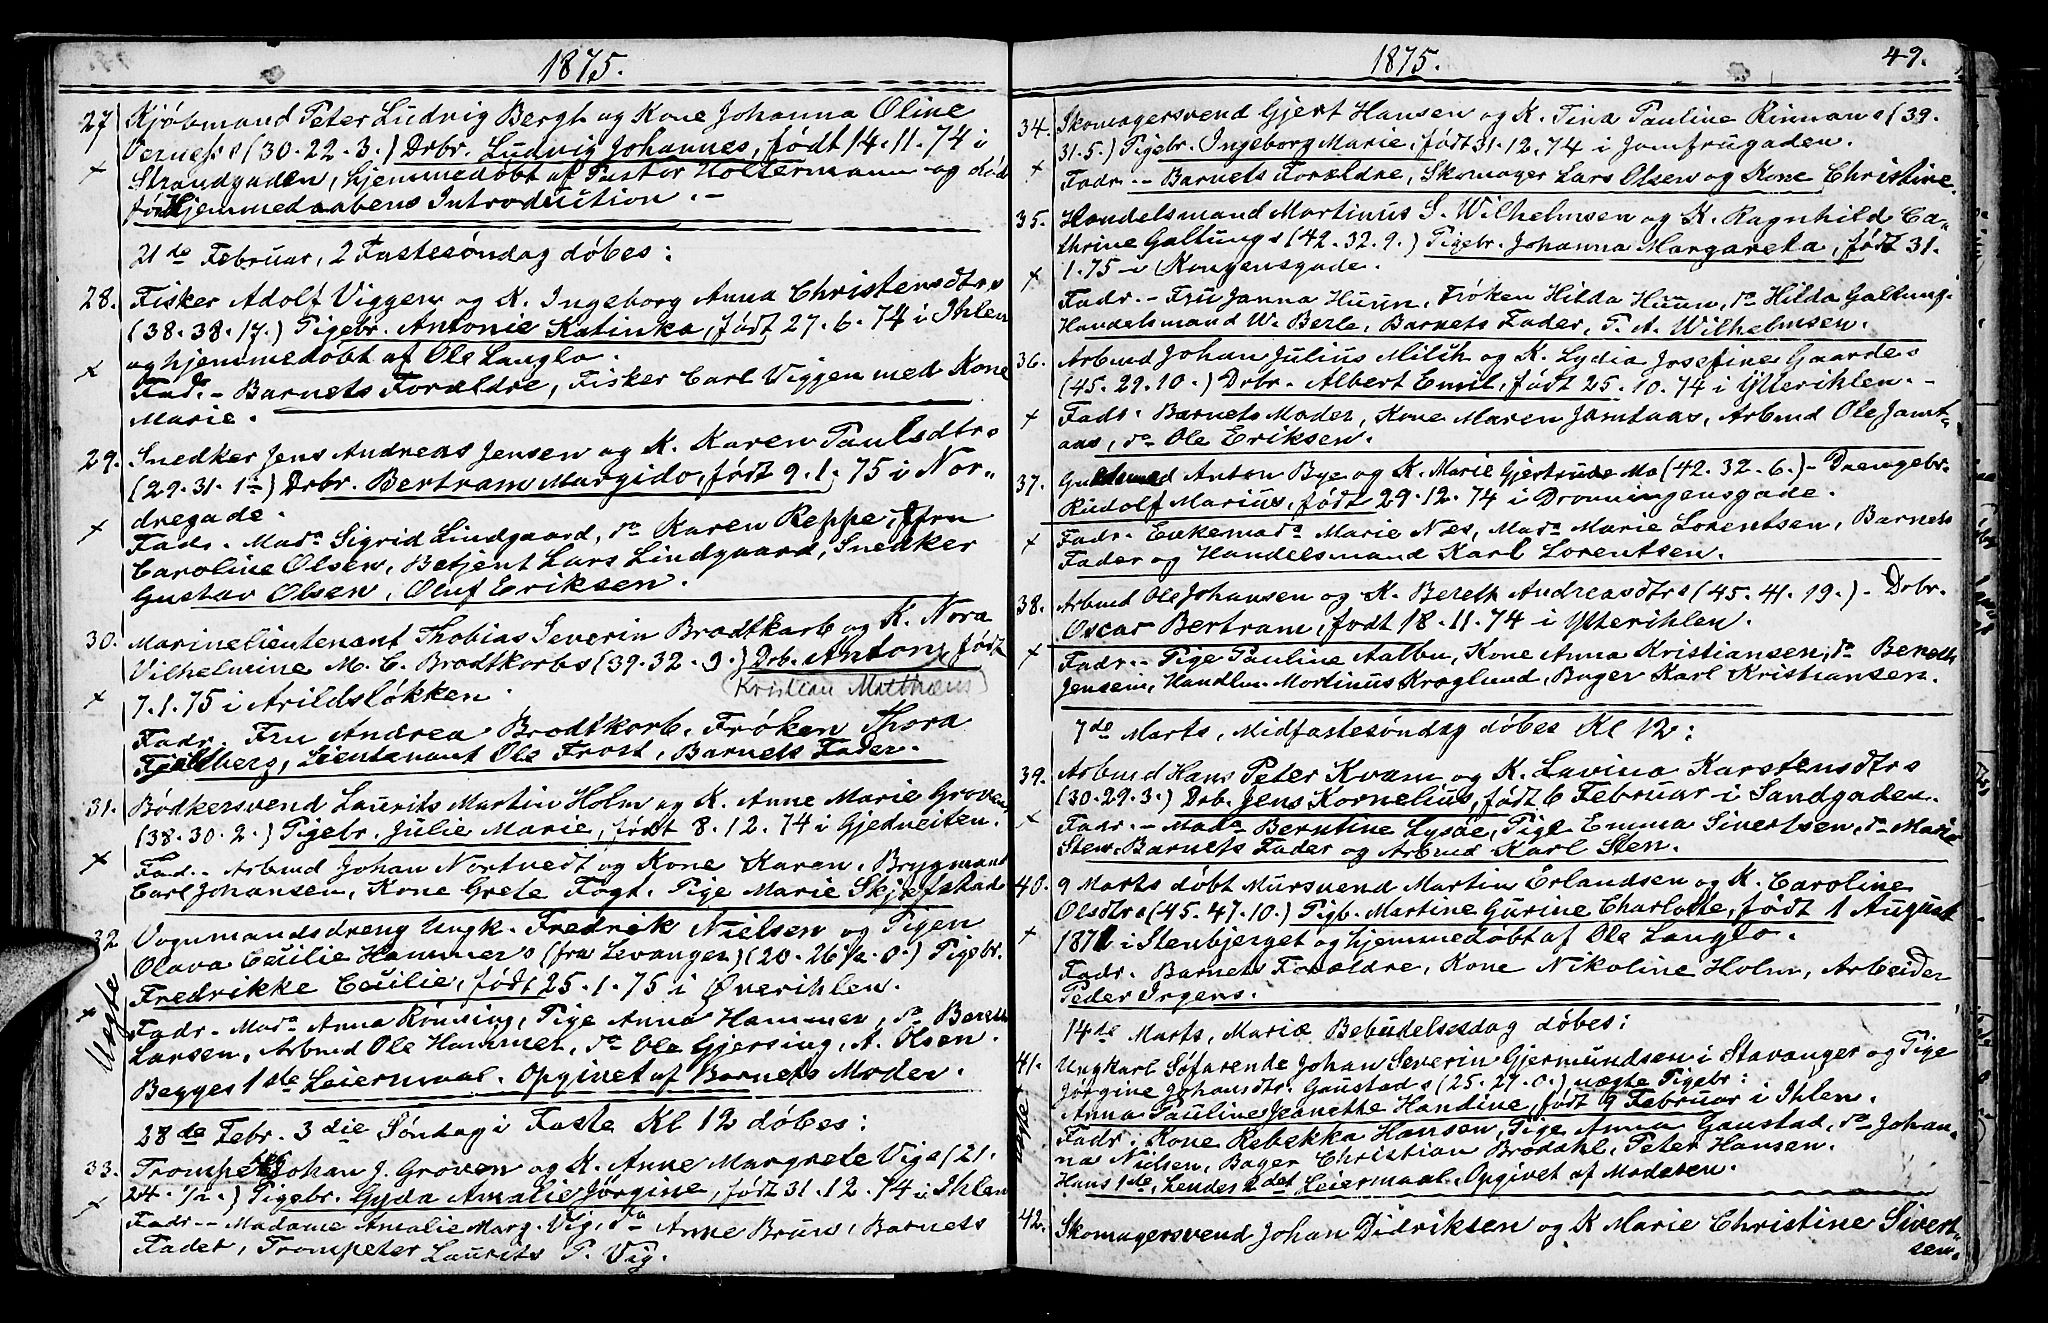 1875.
27 Kjøbmand Peter Ludvig Bergh og Kone Johanna Oline
Werness (30. 22. 3.) Drbr. Ludvig Johannes, født 14. 11. 74 i
Strandgaden, hjemmedøbt af Pastor Holtermann og død
før Hjemmedaabens Introduction. -
21de Februar, 2 Fastesøndag døbes:
28. Fisker Adolf Viggen og K. Ingeborg Anna Christensdtrs
(38. 38. 17.) Pigebr. Antonie Katinka, født 27. 6. 74 i Ihlen
og hjemmedøbt af Ole Langlo.
Fadr. - Barnets Forældre, Fisker Carl Viggen med Kone
Marie.
29. Snedker Jens Andreas Jensen og K. Karen Paulsdtrs
(29. 31. 1½) Drbr. Bertram Margido, født 9. 1. 75 i Nor-
dregade.
Fadr. Mada Sigrid Lindgaard, da Karen Reppe, Fru
Caroline Olsen, Betjent Lars Lindgaard, Snedker
Gustav Olsen, Oluf Eriksen.
30. Marinelieutenant Thobias Severin Brodtkorb og K. Nora
Vilhelmine M. C. Brodtkorbs (39. 32. 9.) Drb. Anton, født
(Kristian Matthæus)
7. 1. 75 i Arildsløkken.
Fadr. Fru Andrea Brodtkorb, Frøken Thora
Fjeldberg, Lieutenant Ole Frost, Barnets Fader.
31. Bødkersvend Laurits Martin Holm og K. Anne Marie Groven,
(38. 30. 2.) Pigebr. Julie Marie, født 8. 12. 74 i Gjedveiten.
Fad. - Arbmd Johan Nortvedt og Kone Karen, Brygmand
Carl Johansen, Kone Grete Fogt, Pige Marie Skjefstad
32 Vognmandsdreng Ungk. Fredrik Nielsen og Pigen
Olava Cecilie Hammers (fra Levanger) (20. 26½. 0.) Pigebr.
Uegte
Fredrikke Cecilie, født 25. 1. 75 i Øvreihlen.
Fadr. Mada Anna Rønsing, Pige Anna Hammer, da Bereth
Larsen, Arbmd Ole Hammer, do Ole Gjersing, A. Olsen.
Begges 1ste Leiermaal. Opgivet af Barnets Moder.
28de Febr. 3die Søndag i Faste Kl 12 døbes:
33. Trompeter Johan J. Groven og K. Anne Margrete Vigs (21.
24. ½.) Pigebr. Gyda Amalie Jørgine, født 31. 12. 74 i Ihlen
Fadr. - Madame Amalie Marg. Vig, da Anne Bruns, Barnets
Fader, Trompeter Laurits P. Vig.
1875.
49.
34. Skomagersvend Gjert Hansen og K. Tina Pauline Rinnans (39.
31. 5.) Pigebr. Ingeborg Marie, født 31. 12. 74 i Jomfrugaden.
Fadr. - Barnets Forældre, Skomager Lars Olsen og Kone Christine.
35. Handelsmand Martinus S. Wilhelmsen og K. Ragnhild Ca-
thrine Galtungs (42. 32. 9.) Pigebr. Johanna Margareta, født 31.
1. 75 i Kongensgade.
Fadr. - Fru Janna Huun, Frøken Hilda Huun, da Hilda Galtung,
Handelsmand W. Berle, Barnets Fader, P. A. Wilhelmsen.
36. Arbmd Johan Julius Milch og K. Lydia Josefine Gaardes
(45. 29. 10.) Drbr. Albert Emil, født 25. 10. 74 i Ytterihlen. -
Fadr. Barnets Moder, Kone Maren Jamtaas, Arbmd Ole Jamt-
aas, do Ole Eriksen.
37. Guldsmed Anton Bye og K. Marie Gjertrude Mo (42. 32. 6.) - Drengebr.
Rudolf Marius, født 29. 12. 74 i Dronningensgade.
Fadr. Enkemada Marie Nes, Mada Marie Lorentsen, Barnets
Fader og Handelsmand Karl Lorentsen.
38. Arbmd Ole Johansen og K. Bereth Andreasdtrs (45. 41. 19.) - Drbr.
Oscar Bertram, født 18. 11. 74 i Ytterihlen.
Fadr. - Pige Pauline Aalbu, Kone Anna Kristiansen, da Bereth
Jensein, Handlm Martinus Kroglund, Bager Karl Kristiansen.
7de Marts, Midfastesøndag døbes Kl 12:
39. Arbmd Hans Peter Kvam og K. Lavina Karstensdtrs
(30. 29. 3.) Drb. Jens Kornelius, født 6 Februar i Sandgaden.
Fadr. - Mada Berntine Lysøe, Pige Emma Sivertsen, da Marie
Sten, Barnets Fader og Arbmd Karl Sten.
40. 9 Marts døbt Mursvend Martin Erlandsen og K. Caroline
Olsdtrs (45. 47. 10.) Pigb. Martine Gurine Charlotte, født 1 August
1871 i Stenbjerget og hjemmedøbt af Ole Langlo.
Fadr. Barnets Forældre, Kone Nikoline Holm, Arbeider
Peder Irgens.
14de Marts, Mariæ Bebudelsesdag døbes:
41. Ungkarl Søfarende Johan Severin Gjermundsen i Stavanger og Pige
Jørgine Johansdtr. Gaustads (25. 27. 0.) uægte Pigebr:
Uegte
Anna Pauline Jeanette Handine, født 9 Februar i Ihlen.
Fadr: Kone Rebekka Hansen, Pige Anna Gaustad, da Johan-
na Nielsen, Bager Christian Brodahl, Peter Hansen.
Hans 1ste, hendes 2det Leiermaal. Opgivet af Moderen.
42. Skomagersvend Johan Didriksen og K Marie Christine Sivert-
sen.